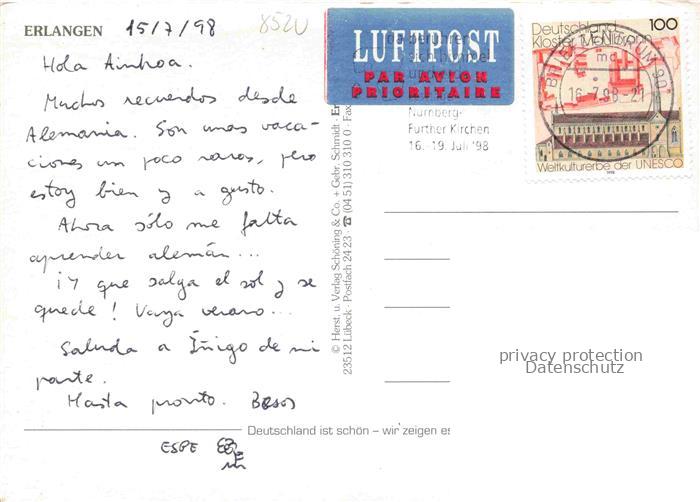 ERLANGEN 15/7/98
8520
Hola Ainhoa.
Muchos recuerdos desde
Alemania. Son unas vaca-
ciones un poco raras, pero
estoy bien y a gusto.
Ahora sólo me falta
aprender alemán...
¡Y que salga el sol y se
quede! Vaya verano...
Saluda a Iñigo de mi
parte.
Hasta pronto. Besos
ESPE
© Herst. u. Verlag Schöning & Co. + Gebr. Schmidt
23512 Lübeck · Postfach 24 23 · ☎ (04 51) 310 310 0 · Fax
Deutschland ist schön – wir zeigen es
LUFTPOST
PAR AVION
PRIORITAIRE
Nürnberg-
Fürther Kirchen
16.-19. Juli '98
Deutschland 100
Kloster Maulbronn
BRIEFZENTRUM 90
mc
16.-7.98-21
Weltkulturerbe der UNESCO
1998
privacy protection
Datenschutz